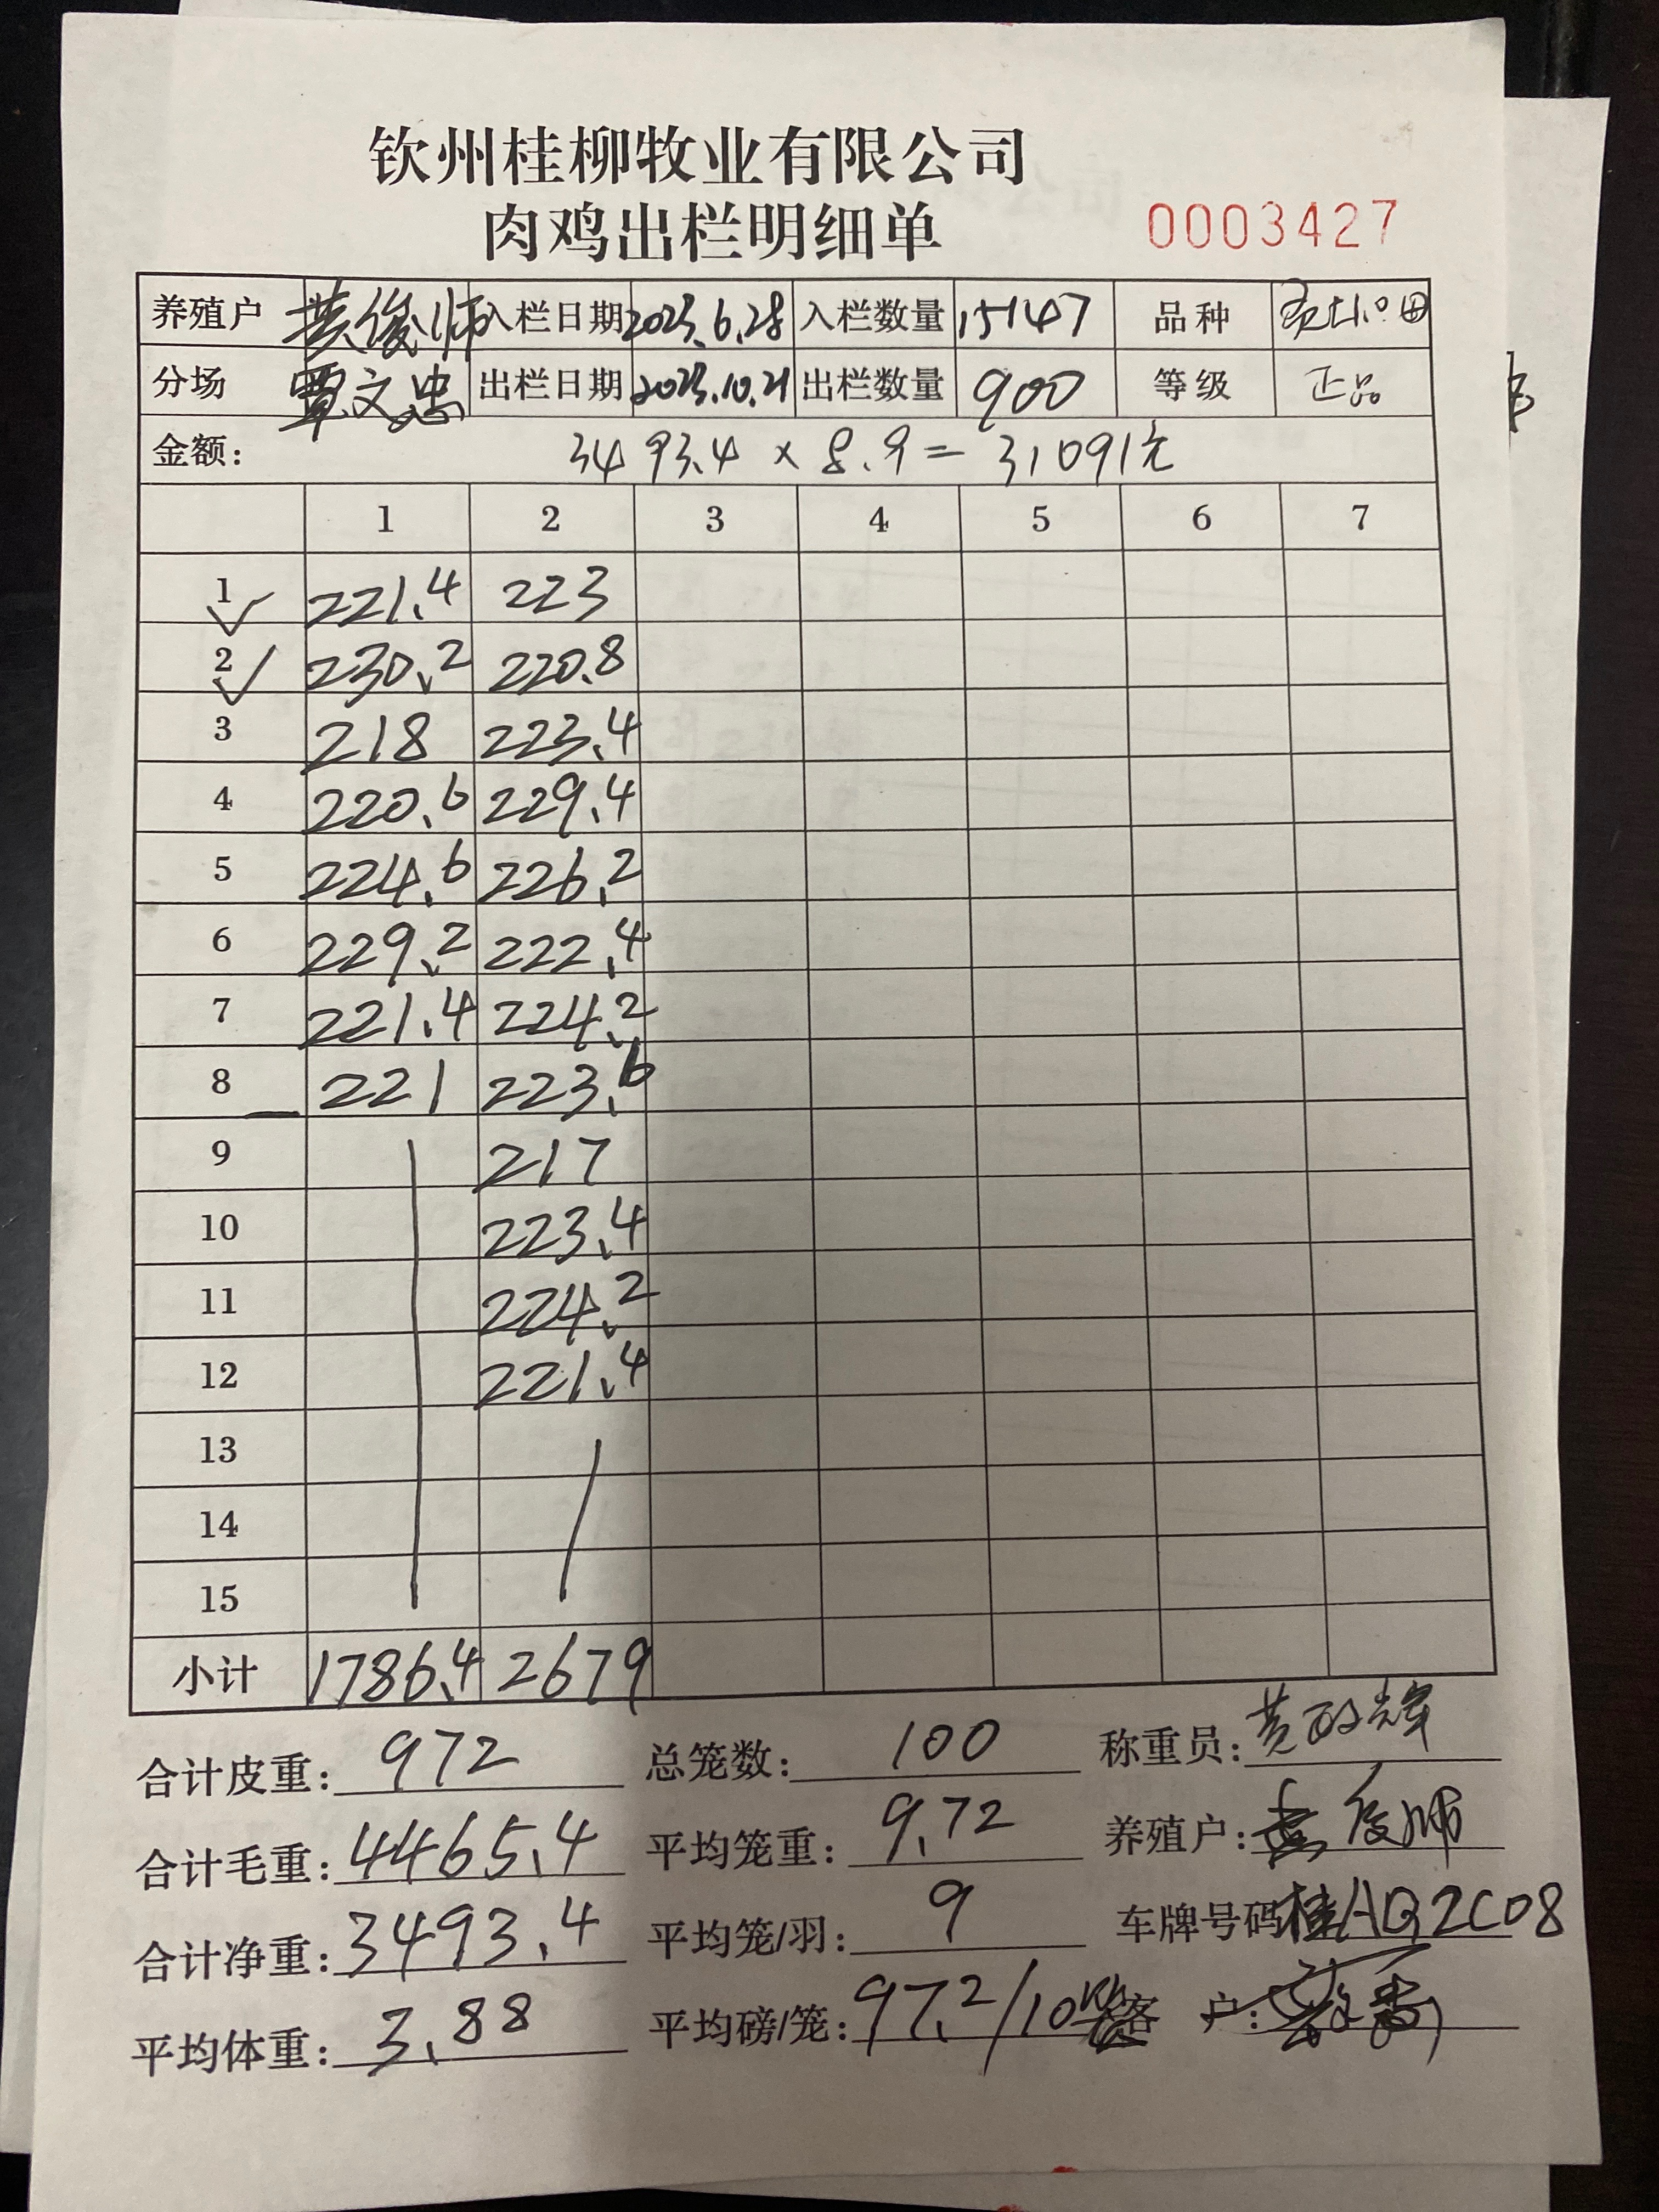 钦州桂柳牧业有限公司
肉鸡出栏明细单 0003427
养殖户 黄俊师 入栏日期 2023.6.28 入栏数量 15147 品种
分场 覃文忠 出栏日期 2023.10.21 出栏数量 900 等级 正品
金额: 3493.4 × 8.9 = 31091元
1 2 3 4 5 6 7
1 221.4 223
2 230.2 220.8
3 218 223.4
4 220.6 229.4
5 224.6 226.2
6 229.2 222.4
7 221.4 224.2
8 221 223.6
9 217
10 223.4
11 224.2
12 221.4
13
14
15
小计 1786.4 2679
合计皮重: 972 总笼数: 100 称重员:
合计毛重: 4465.4 平均笼重: 9.72 养殖户: 黄俊师
合计净重: 3493.4 平均笼/羽: 9 车牌号码 桂AQ2C08
平均体重: 3.88 平均磅/笼: 97.2/10 客户: